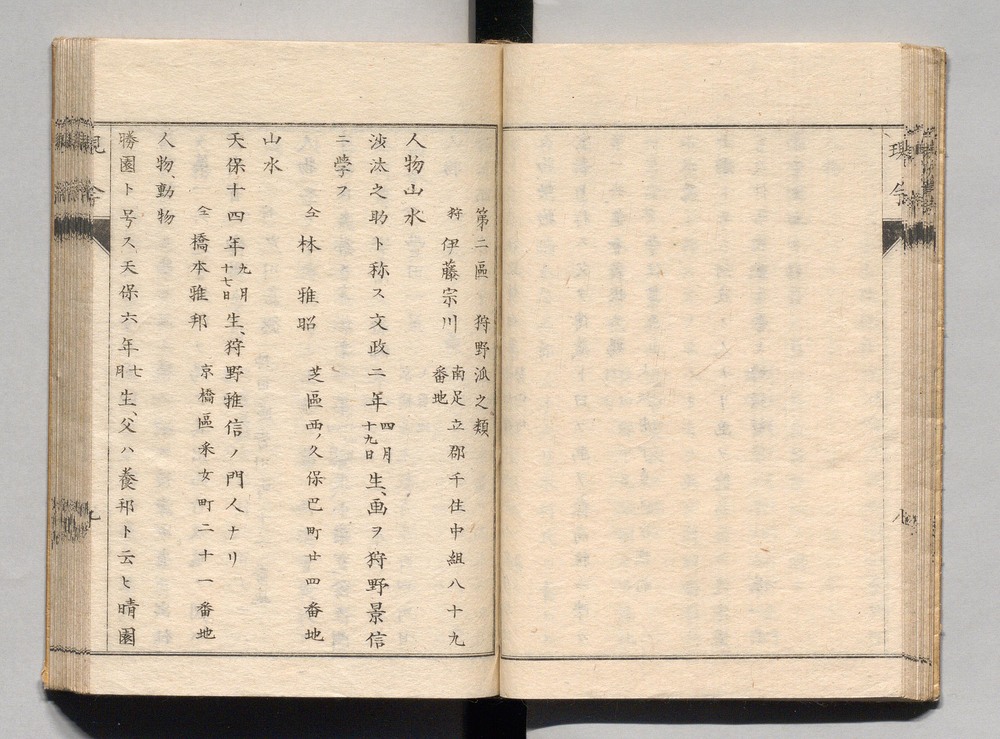 第二區 狩野派之類
狩 伊藤宗川 南足立郡千住中組八十九番地
人物山水
汝汰之助ト称ス文政二年四月十九日生、画ヲ狩野景信
ニ学フ
仝 林 雅昭 芝區西ノ久保巴町廿四番地
山水
天保十四年九月十七日生、狩野雅信ノ門人ナリ
仝 橋本雅邦 京橋區采女町二十一番地
人物、動物
勝園ト号ス、天保六年七月生、父ハ養邦ト云ヒ晴園
現今
九
現今
八